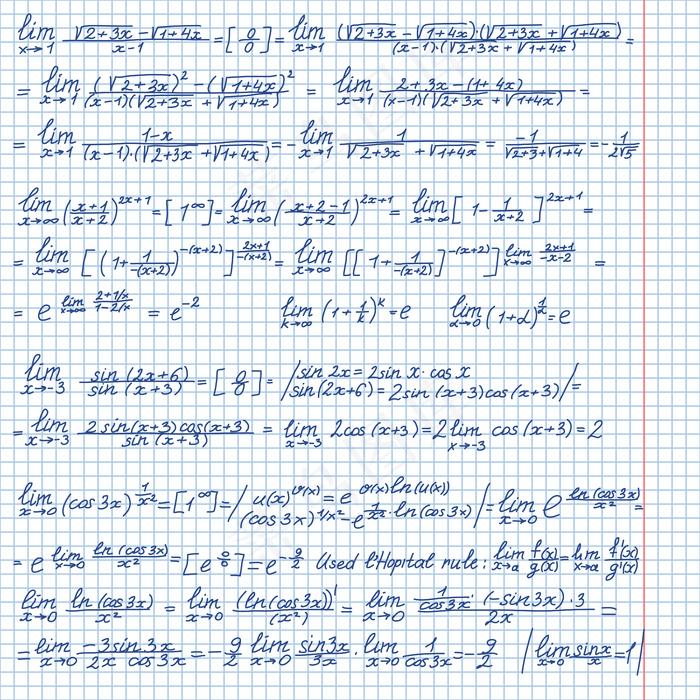 lim x→1 (√(2+3x) − √(1+4x))/(x−1) = [0/0] = lim x→1 ((√(2+3x) − √(1+4x))·(√(2+3x) + √(1+4x)))/((x−1)·(√(2+3x) + √(1+4x))) =
= lim x→1 ((√(2+3x))² − (√(1+4x))²)/((x−1)(√(2+3x) + √(1+4x))) = lim x→1 (2+3x−(1+4x))/((x−1)(√(2+3x) + √(1+4x))) =
= lim x→1 (1−x)/((x−1)·(√(2+3x) + √(1+4x))) = − lim x→1 1/(√(2+3x) + √(1+4x)) = −1/(√(2+3) + √(1+4)) = −1/(2√5)
lim x→∞ ((x+1)/(x+2))^(2x+1) = [1^∞] = lim x→∞ ((x+2−1)/(x+2))^(2x+1) = lim x→∞ [1 − 1/(x+2)]^(2x+1) =
= lim x→∞ [(1 + 1/(−(x+2)))^(−(x+2))]^((2x+1)/(−(x+2))) = lim x→∞ [[1 + 1/(−(x+2))]^(−(x+2))]^(lim x→∞ (2x+1)/(−x−2)) =
= e^(lim x→∞ (2+1/x)/(1−2/x)) = e^(−2) lim k→∞ (1+1/k)^k = e lim α→0 (1+α)^(1/α) = e
lim x→−3 sin(2x+6)/sin(x+3) = [0/0] = / sin 2x = 2 sin x · cos x
sin(2x+6) = 2 sin(x+3) cos(x+3) / =
= lim x→−3 (2 sin(x+3) cos(x+3))/(sin(x+3)) = lim x→−3 2cos(x+3) = 2 lim x→−3 cos(x+3) = 2
lim x→0 (cos 3x)^(1/x²) = [1^∞] = / u(x)^(v(x)) = e^(v(x) ln(u(x)))
(cos 3x)^(1/x²) − e^(1/x² · ln(cos 3x)) / = lim x→0 e^(ln(cos 3x)/x²) =
= e^(lim x→0 ln(cos 3x)/x²) = [e^(0/0)] = e^(−9/2) Used l'Hopital rule: lim x→a f(x)/g(x) = lim x→a f'(x)/g'(x)
lim x→0 ln(cos 3x)/x² = lim x→0 (ln(cos 3x))'/(x²) = lim x→0 (1/(cos 3x) · (−sin 3x) · 3)/(2x) =
= lim x→0 (−3 sin 3x)/(2x cos 3x) = −9/2 lim x→0 sin 3x/3x · lim x→0 1/cos 3x = −9/2 | lim x→0 sin x/x = 1 |